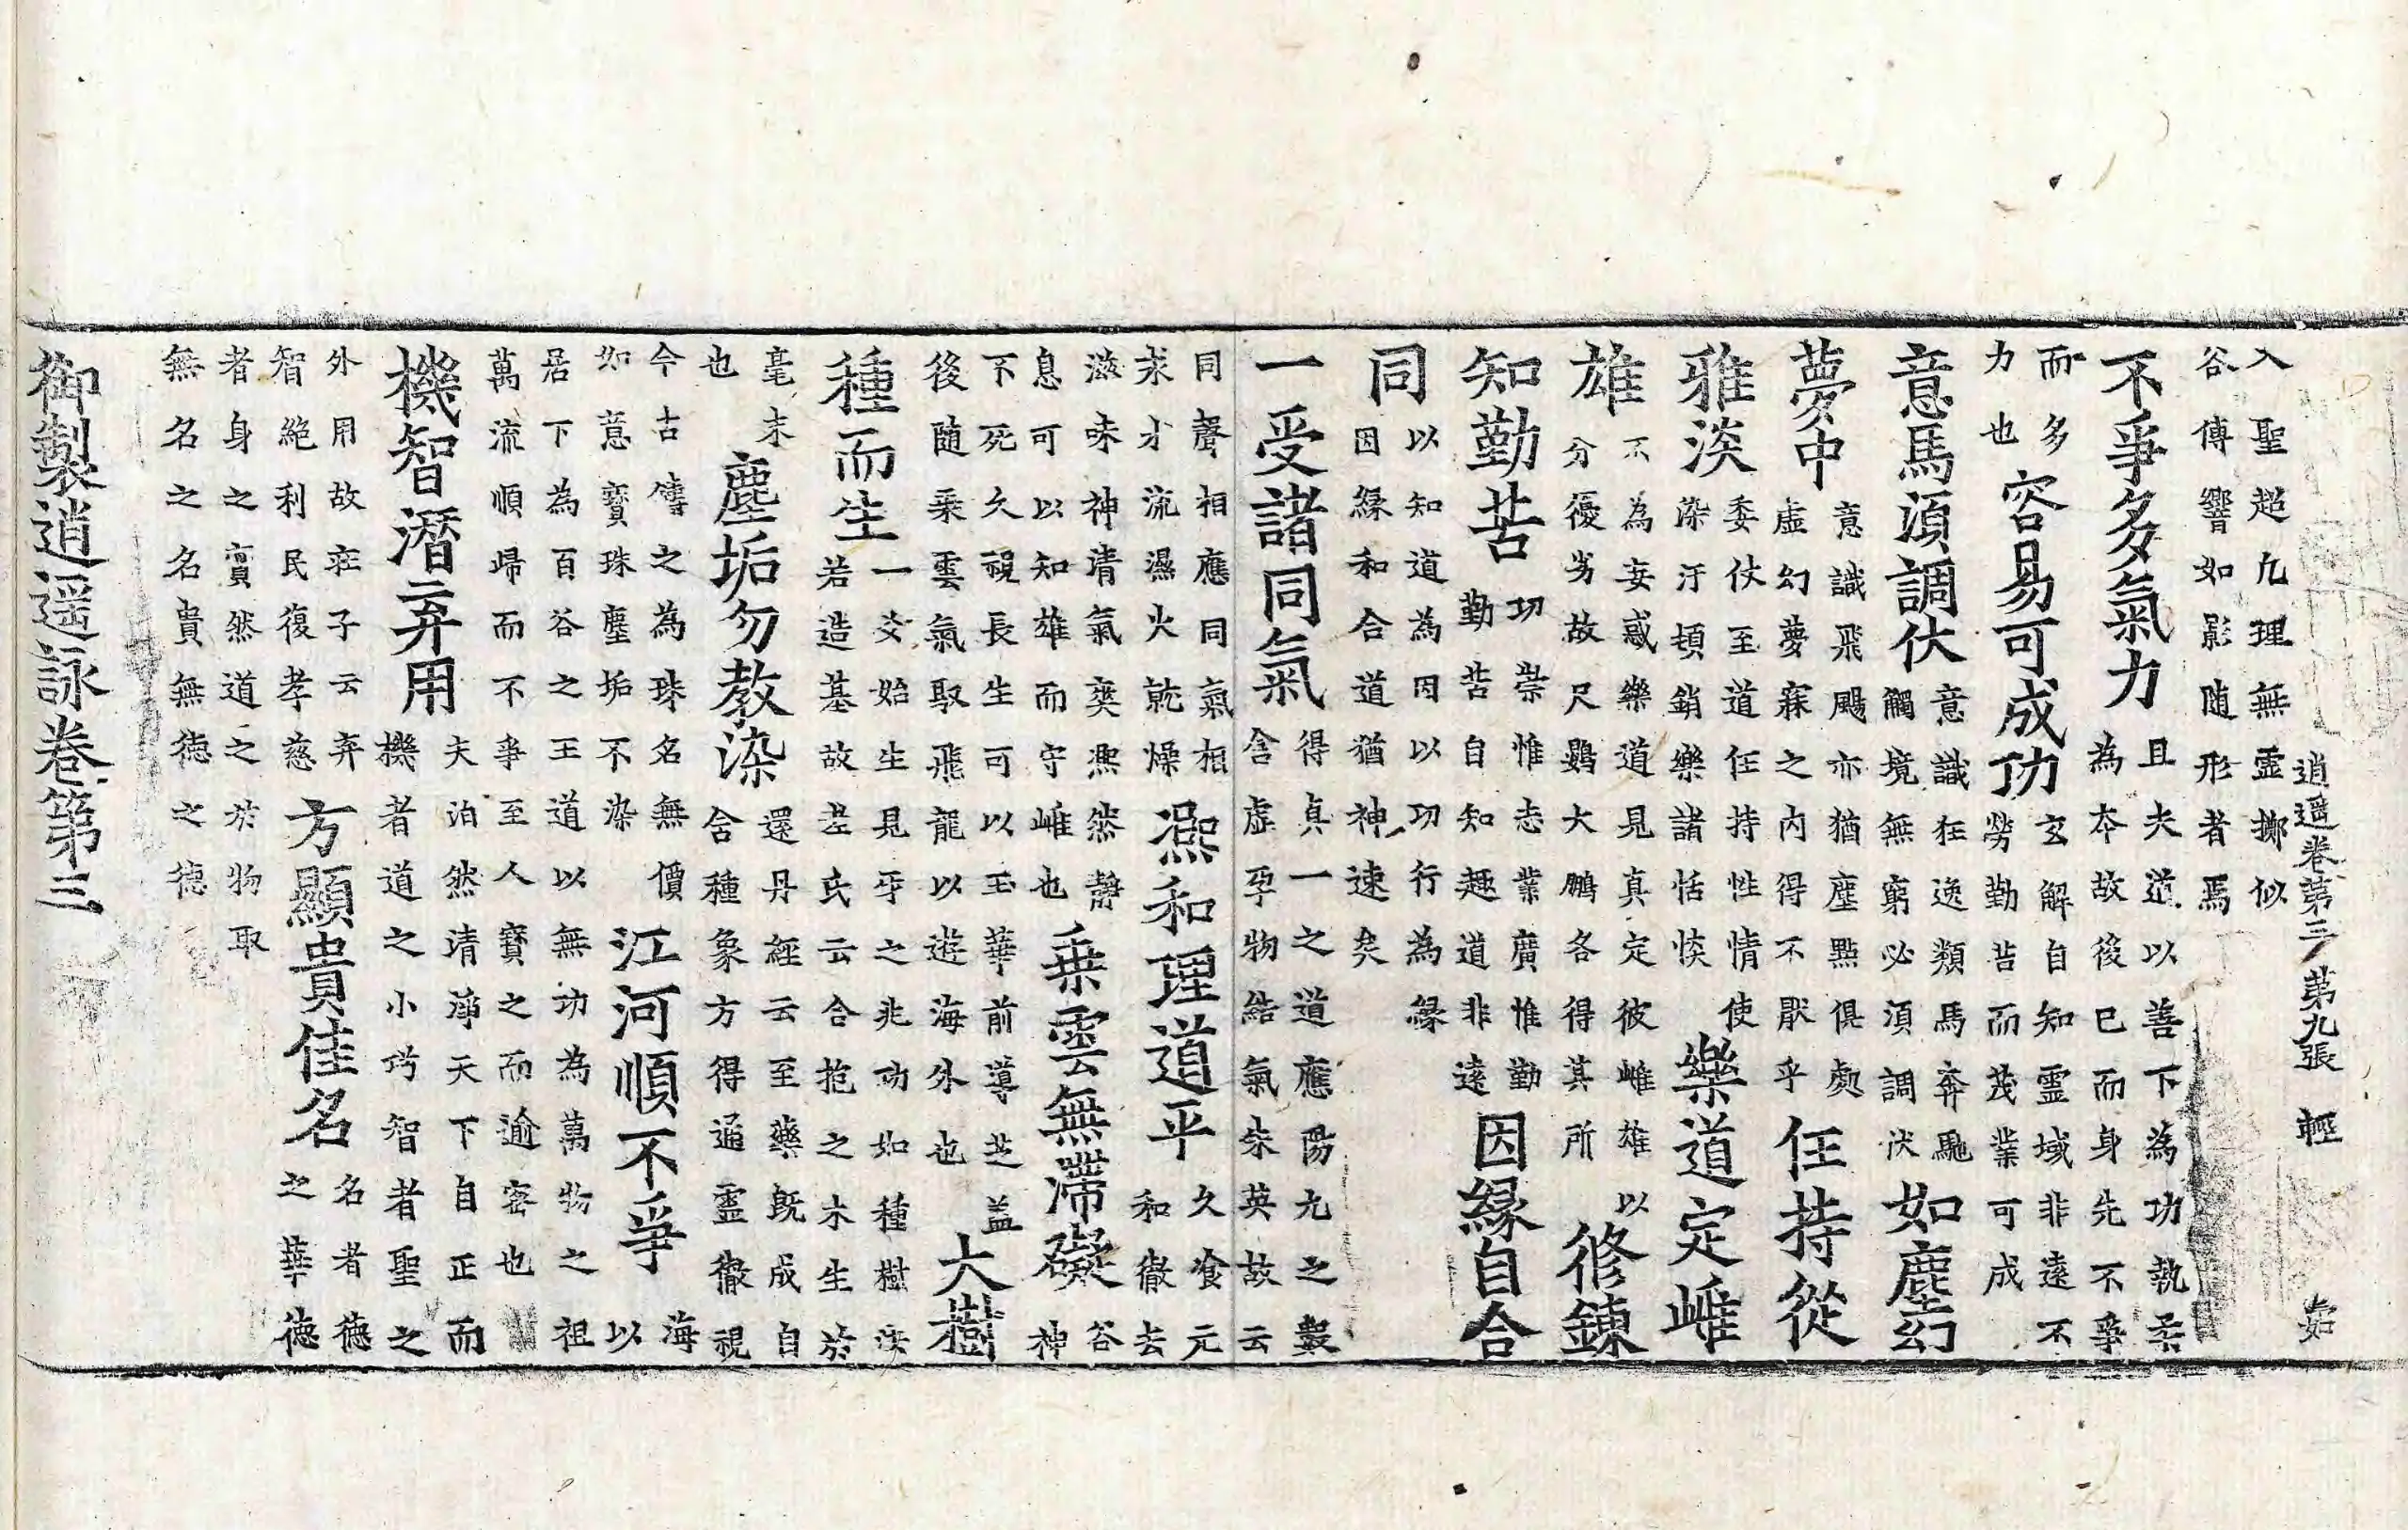 逍遥卷第三 第九張 輕
入聖超九理無靈擲似
谷傳響如影随形者焉
不爭多氣力
且夫道以善下為功執柔
為本故後已而身先不爭
而多
力也
容易可成功
玄解自知靈域非遠不
勞勤苦而茂業可成
意馬須調伏
意識狂逸類馬奔馳
觸境無窮必須調伏
如塵幻
夢中
意識飛颺亦猶塵點俱處
虛幻夢寐之內得不厭乎
任持從
雅淡
委仗至道任持性情使
染汙頓銷樂諸恬惔
樂道定雌
雄
不為妄惑樂道見真定彼雌雄以
分優劣故尺鷃大鵬各得其所
修鍊
知勤苦
功崇惟志業廣惟勤
勤苦自知趣道非遠
因緣自合
同
以知道為因以功行為緣
因緣和合道猶神速矣
一受諸同氣
得真一之道應陽九之數
含虛孕物結氣朱英故云
同聲相應同氣相
求水流濕火就燥
凞和理道平
久飡元
和徹去
滋味神清氣爽凞然靜
息可以知雄而守雌也
乗雲無滯礙
谷
神
不死久視長生可以玉華前導芝蓋
後随乗雲氣馭飛龍以遊海外也
大樹
種而生
一爻始生見乎之兆功如種樹
若造基故老氏云合抱之木生於
毫末
也
塵垢勿教染
還丹經云至藥既成自
含種象方得通靈徹視
今古傳之為珠名無價
如意寶珠塵垢不染
江河順不爭
海
以
居下為百谷之王道以無功為萬物之祖
萬流順歸而不爭至人寶之而逾密也
機智潛弃用
夫泊然清淨天下自正而
機者道之小巧智者聖之
外用故莊子云弃
智絕利民復孝慈
方顯貴佳名
名者德
之華德
者身之賓然道之於物取
無名之名貴無德之德
御製逍遥詠卷第三